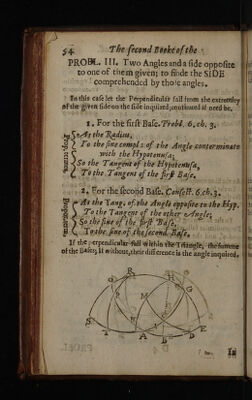 54 The second Booke of the
PROBL. III. Two Angles and a side opposite
to one of them given; to finde the SIDE
comprehended by those angles.
In this case let the Perpendicular fall from the extremity
of the given side on the side inquired, continued if need be.
1. For the first Base. Probl. 6. ch. 3.
Proportion.
As the Radius,
To the sine compl: of the Angle conterminate
with the Hypotenusa;
So the Tangent of the Hypotenusa,
To the Tangent of the first Base.
2. For the second Base. Consect. 6. ch. 3.
Proportion.
As the Tang. of the Angle opposite to the Hyp.
To the Tangent of the other Angle;
So the sine of the first Base,
To the sine of the second Base.
If the perpendicular fall within the Triangle, the summe
of the Bases; if without, their difference is the angle inquired.
R H
O G
P M
S T A B D E
In